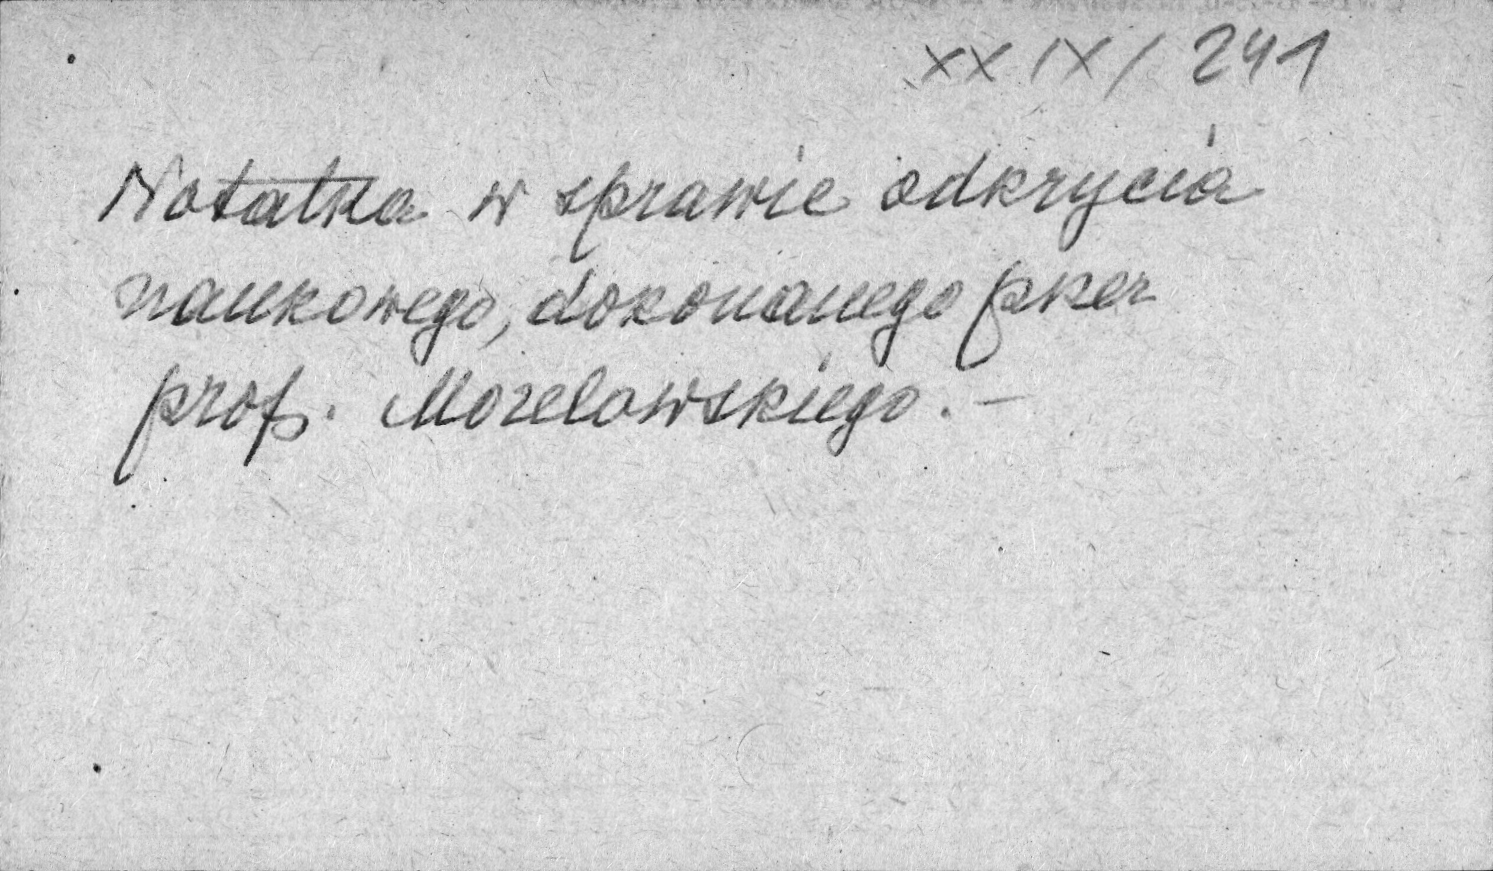 XXIX/241
Notatka w sprawie odkrycia
naukowego, dokonanego przez
prof. Morelowskiego. –